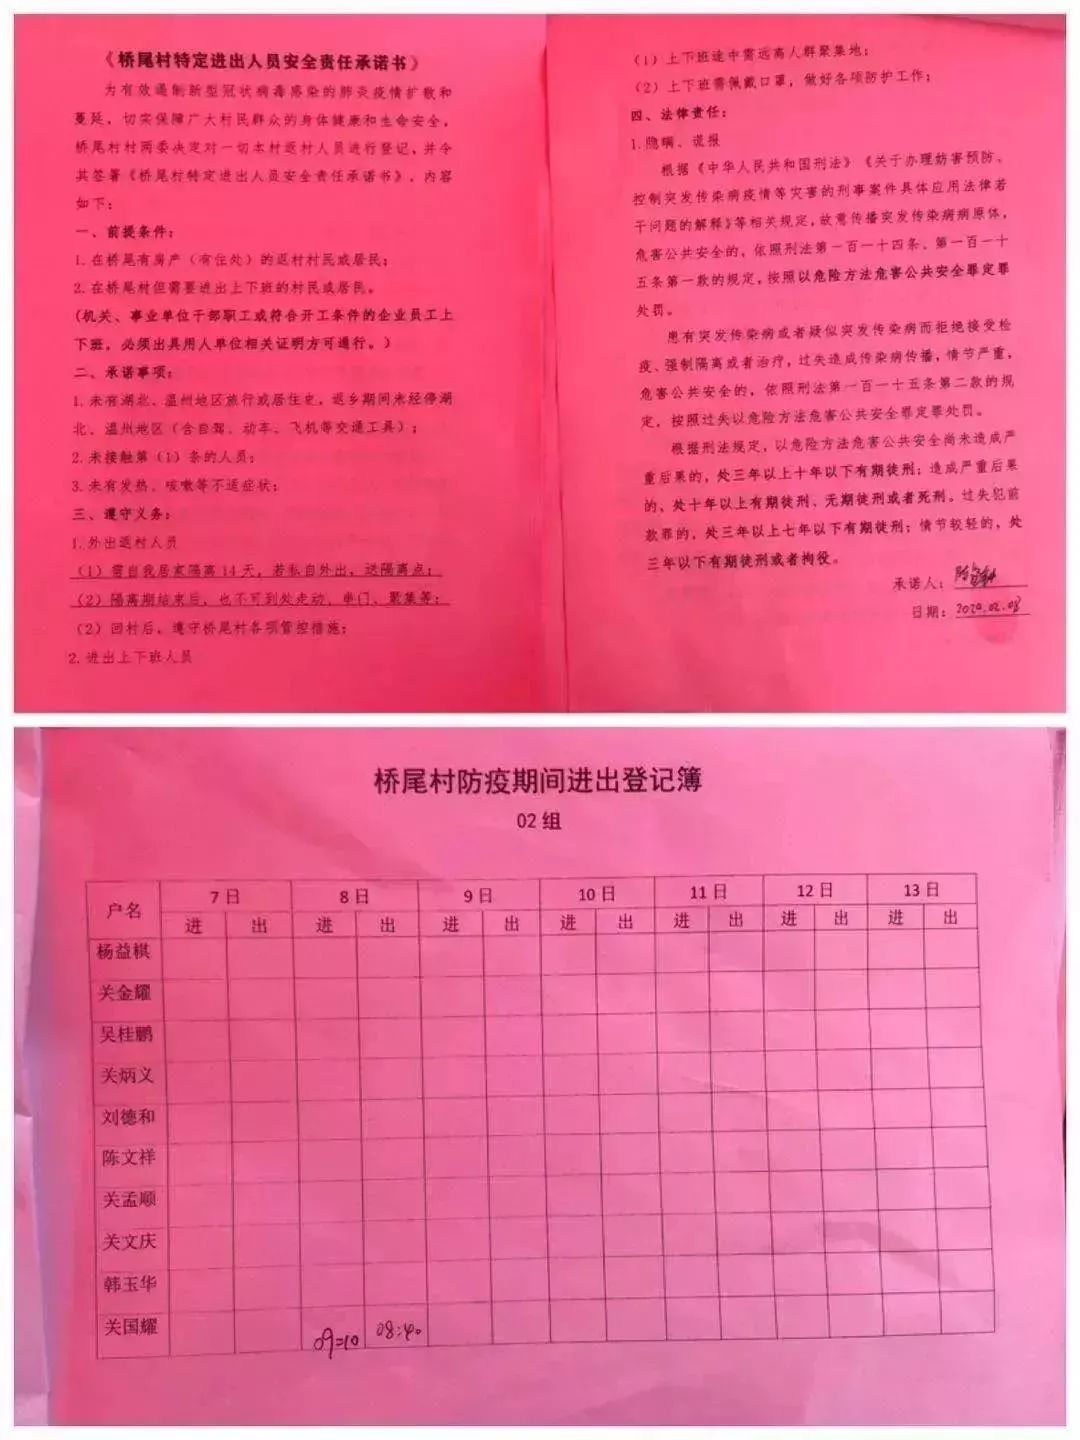 《桥尾村特定进出人员安全责任承诺书》
为有效遏制新型冠状病毒感染的肺炎疫情扩散和
蔓延，切实保障广大村民群众的身体健康和生命安全，
桥尾村村两委决定对一切本村返村人员进行登记，并令
其签署《桥尾村特定进出人员安全责任承诺书》，内容
如下：
一、前提条件：
1.在桥尾有房产（有住处）的返村村民或居民；
2.在桥尾村但需要进出上下班的村民或居民。
(机关、事业单位干部职工或符合开工条件的企业员工上
下班，必须出具用人单位相关证明方可通行。)
二、承诺事项：
1.未有湖北、温州地区旅行或居住史，返乡期间未经停湖
北、温州地区（含自驾、动车、飞机等交通工具）；
2.未接触第（1）条的人员；
3.未有发热、咳嗽等不适症状；
三、遵守义务：
1.外出返村人员
（1）需自我居家隔离14天，若私自外出，送隔离点；
（2）隔离期结束后，也不可到处走动、串门、聚集等；
（2）回村后，遵守桥尾村各项管控措施；
2.进出上下班人员
（1）上下班途中需远离人群聚集地；
（2）上下班需佩戴口罩，做好各项防护工作；
四、法律责任：
1.隐瞒、谎报
根据《中华人民共和国刑法》《关于办理妨害预防、
控制突发传染病疫情等灾害的刑事案件具体应用法律若
干问题的解释》等相关规定，故意传播突发传染病病原体，
危害公共安全的，依照刑法第一百一十四条、第一百一十
五条第一款的规定，按照以危险方法危害公共安全罪定罪
处罚。
患有突发传染病或者疑似突发传染病而拒绝接受检
疫、强制隔离或者治疗，过失造成传染病传播，情节严重，
危害公共安全的，依照刑法第一百一十五条第二款的规
定，按照过失以危险方法危害公共安全罪定罪处罚。
根据刑法规定，以危险方法危害公共安全尚未造成严
重后果的，处三年以上十年以下有期徒刑；造成严重后果
的，处十年以上有期徒刑、无期徒刑或者死刑。过失犯前
款罪的，处三年以上七年以下有期徒刑；情节较轻的，处
三年以下有期徒刑或者拘役。
承诺人：
日期：2020.02.08
桥尾村防疫期间进出登记簿
02 组
户名 7 日 8 日 9 日 10 日 11 日 12 日 13 日
进 出 进 出 进 出 进 出 进 出 进 出 进 出
杨益棋
关金耀
吴桂鹏
关炳义
刘德和
陈文祥
关孟顺
关文庆
韩玉华
关国耀 09:10 08:40